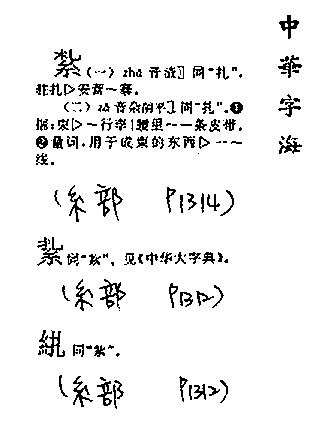 中華字海
紮 (一) zhā 音渣〗同"扎"。
驻扎▷安营~寨。
(二) zā 音杂阴平〗同"扎"。❶
捆:束▷~行李|腰里~一条皮带。
❷量词,用于成束的东西▷一~
线。
(糸部 P1314)
同"紮"。见《中华大字典》。
(糸部 P1312)
同"紮"。
(糸部 P1312)